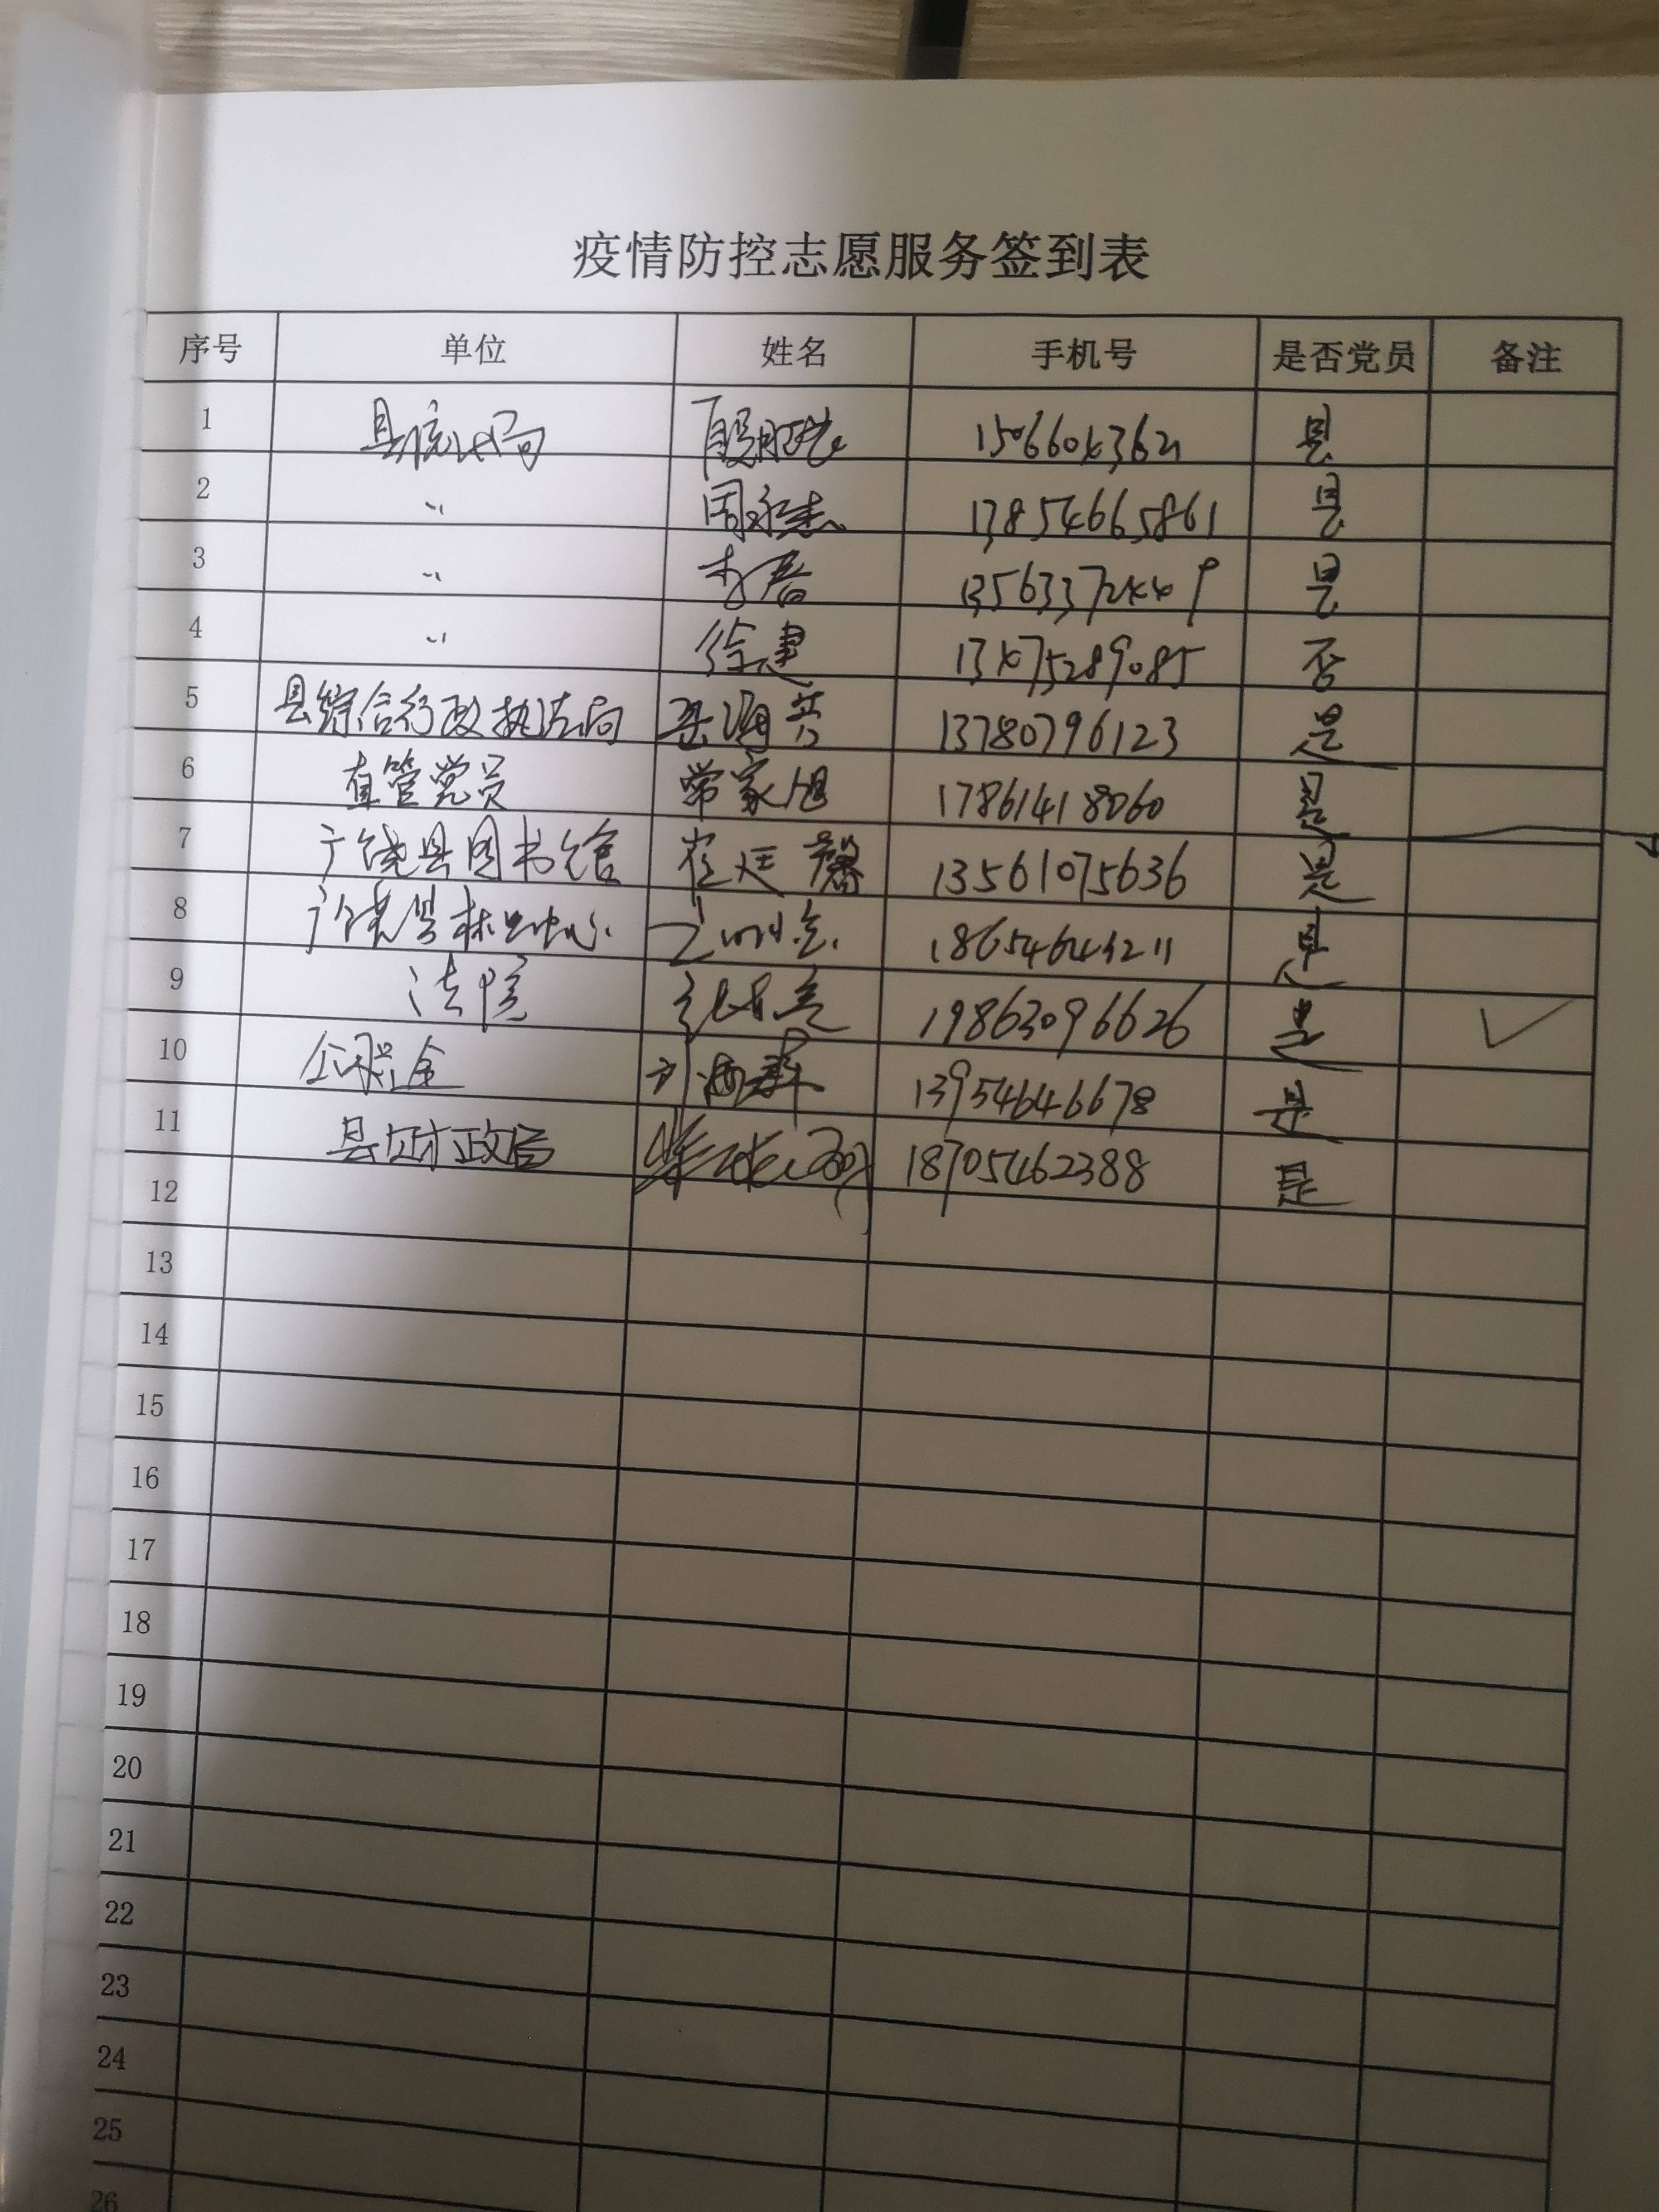 疫情防控志愿服务签到表
序号 单位 姓名 手机号 是否党员 备注
1 县统计局 是
2 〃 周永志 13854665861 是
3 〃 13563372449 是
4 〃 徐建 13475289085 否
5 县综合行政执法局 13780796123 是
6 直管党员 常家旭 17861418060 是
7 广饶县图书馆 崔廷馨 13561075636 是
8 广饶县林业中心 是
9 法院 19863096626 是 ✓
10 公积金 13954646678 是
11 县财政局 18705462388 是
12
13
14
15
16
17
18
19
20
21
22
23
24
25
26